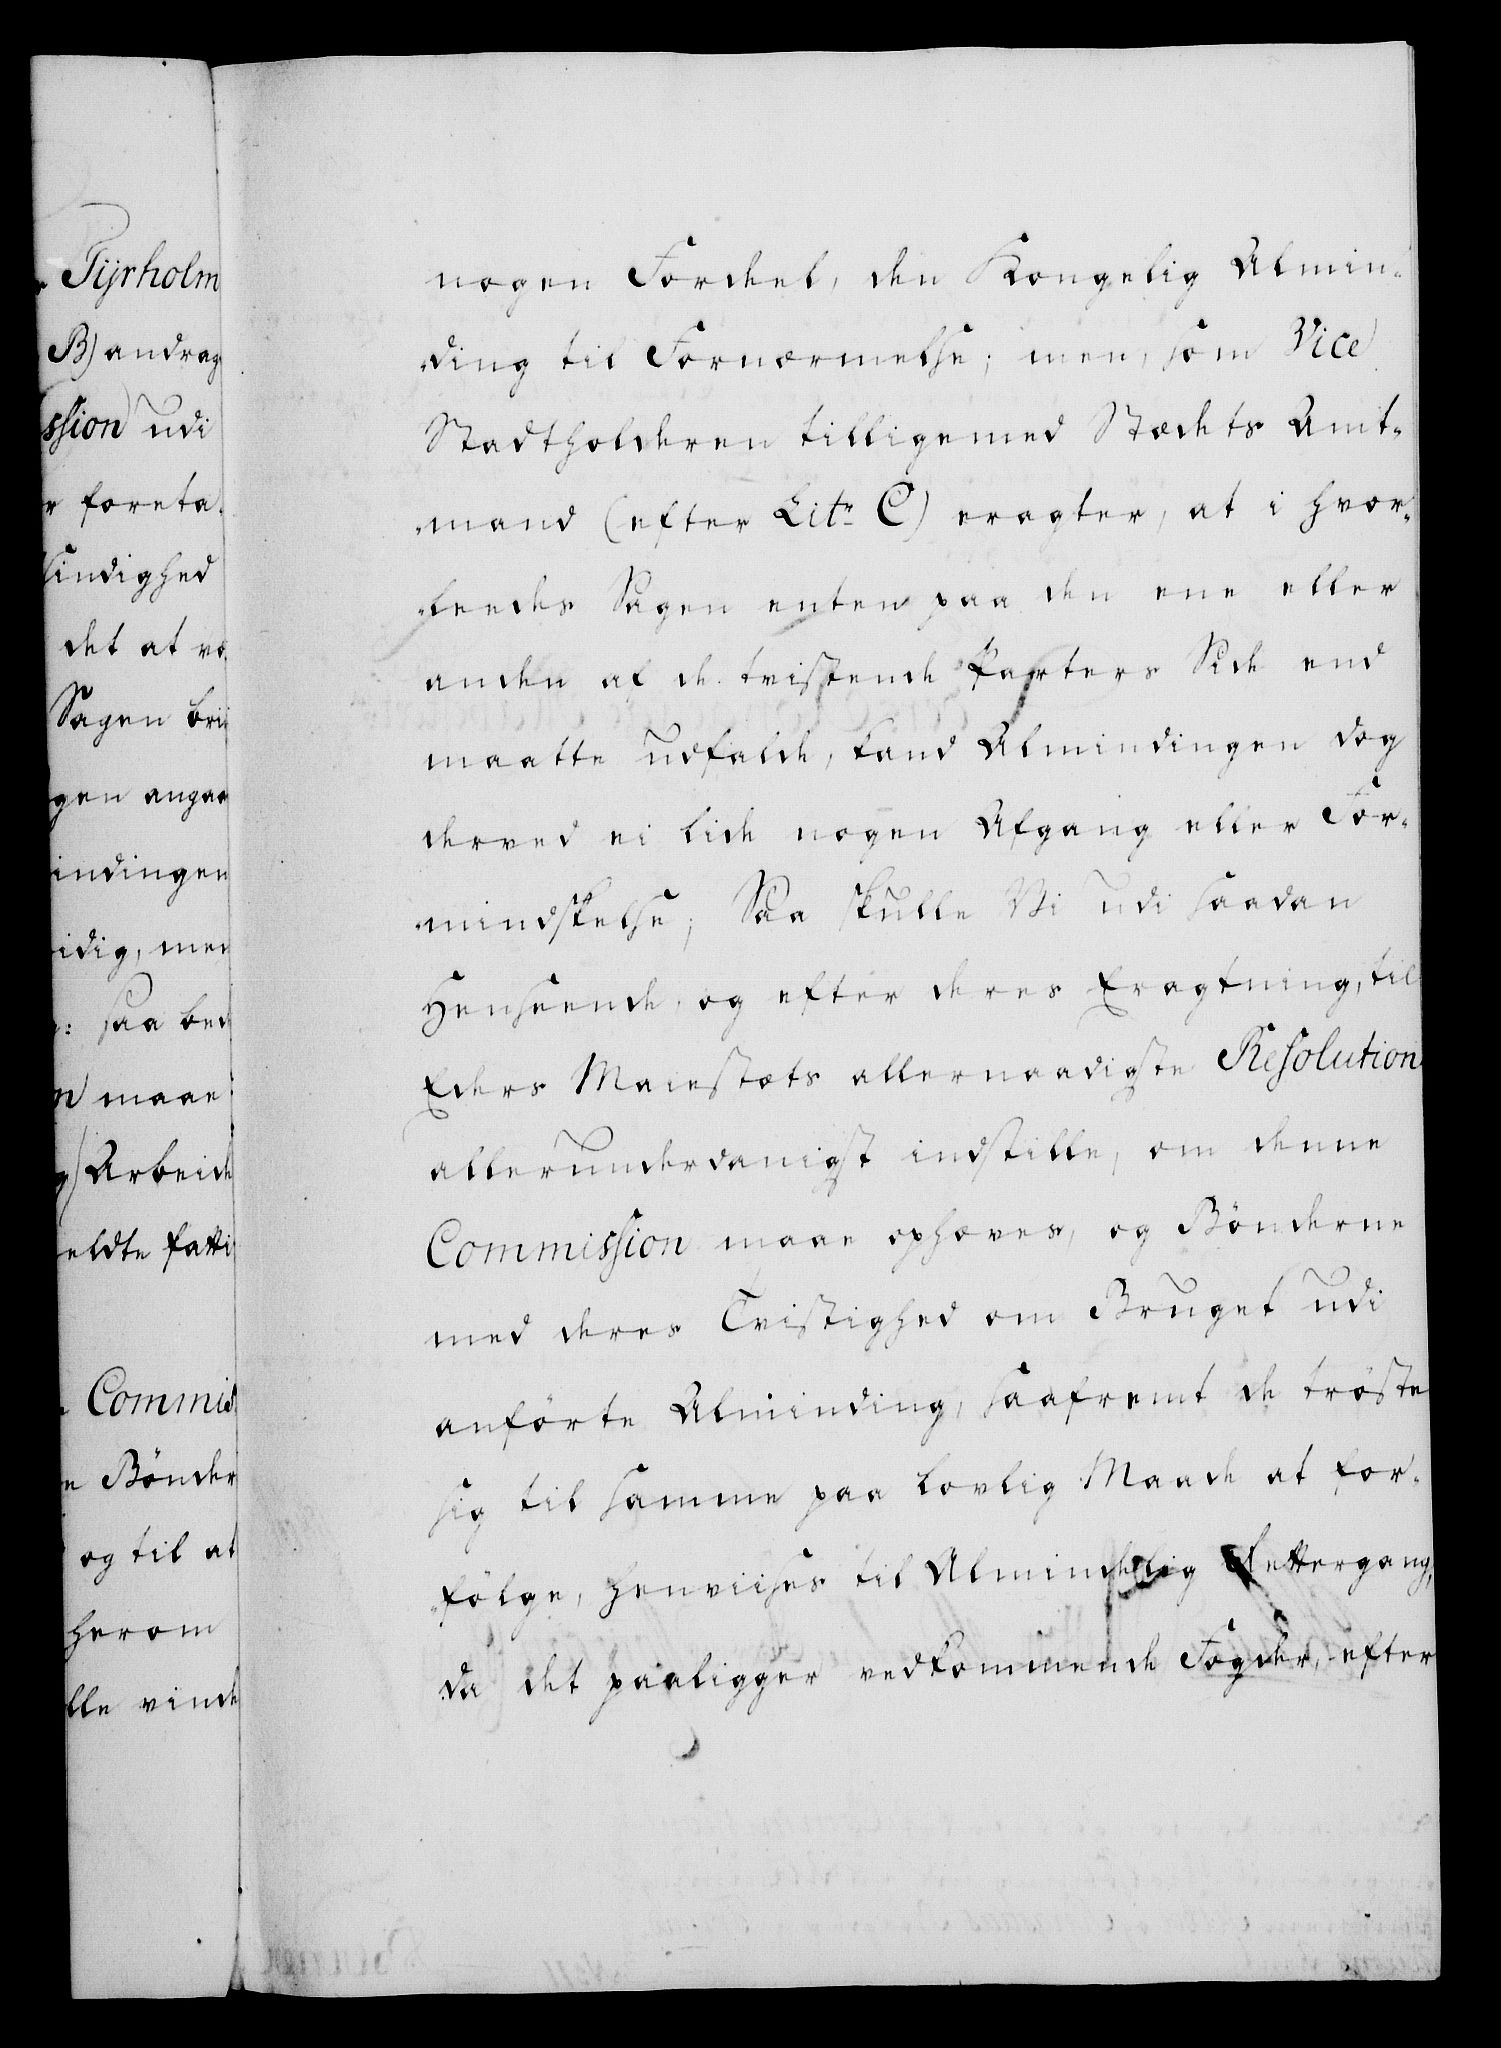 Tÿrholm
B) andrag
ssion udi
r foreta
sindighed
det at
Sagen
gen angaa
indingen
idig, men
saa bed
n maae
Arbeide
eldte fatti
Commis
n Bønder
og til at
herom
lle vinde
nogen Fordeel, den Kongelig Almin-
ding til Fornærmelse; men, som Vice
Stadtholderen tilligemed Stædets Amt-
mand (efter Litr C) eragter, at i hvor-
leedes Sagen enten paa den ene eller
anden af de tvistende Parters Side end
maatte udfalde, kand Almindingen dog
derved ei lide nogen Afgang eller For-
mindskelse; Saa skulle Vi udi saadan
Henseende, og efter deres Eragtning, til
Eders Maiestæts allernaadigste Resolution
allerunderdanigst indstille, om denne
Commission maae ophæves, og Bønderne
med deres Tvistighed om Bruget udi
anførte Alminding, saafremt de trøste
sig til samme paa lovlig Maade at for-
følge, henviises til Almindelig Rettergang,
da det paaligger vedkommende Fogder, efter